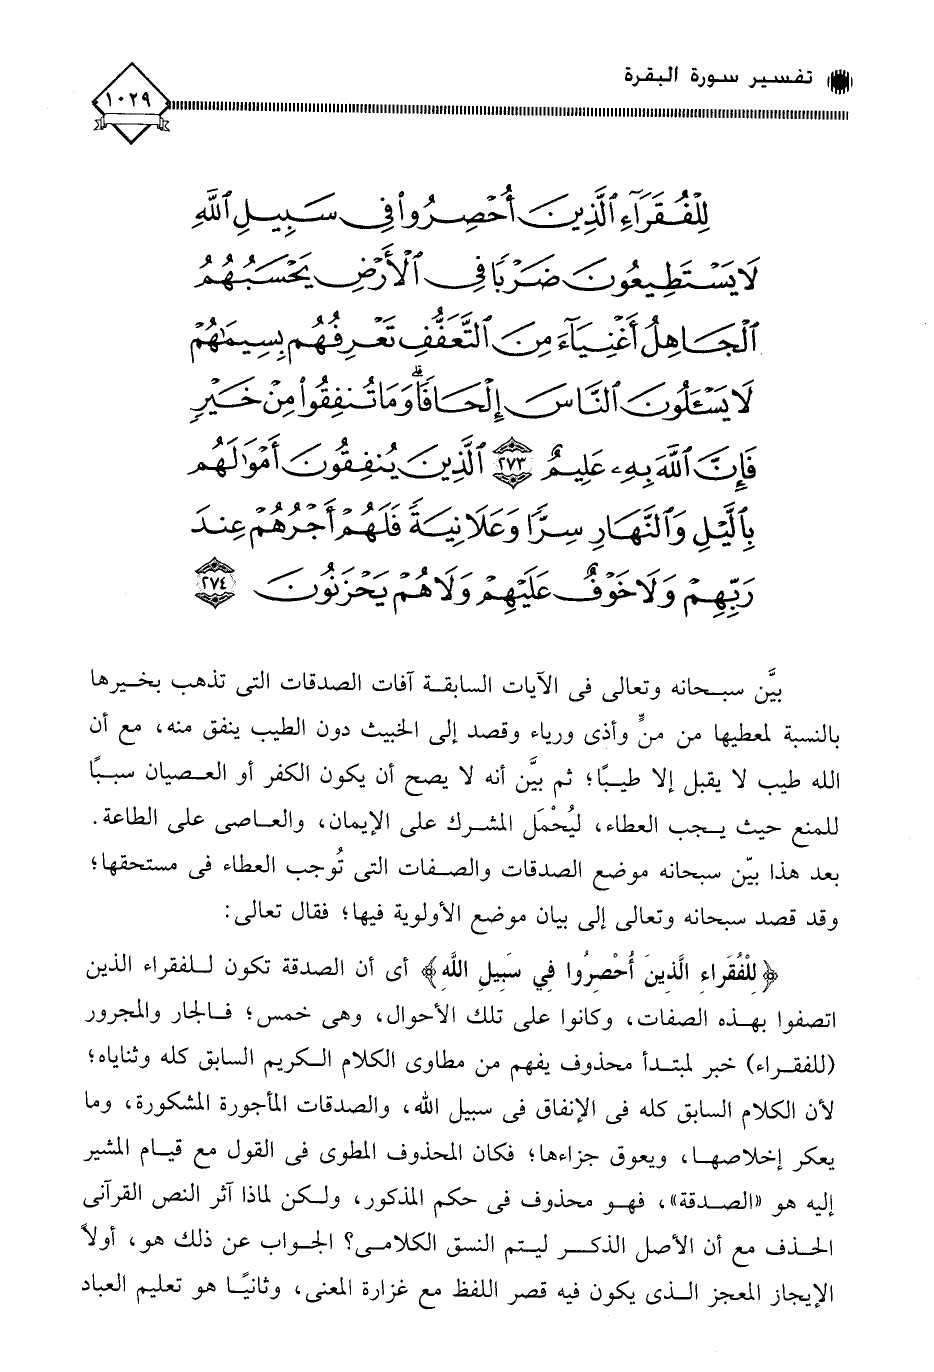 تفسير سورة البقرة
١٠٢٩
لِلْفُقَرَآءِ ٱلَّذِينَ أُحْصِرُوا۟ فِى سَبِيلِ ٱللَّهِ
لَا يَسْتَطِيعُونَ ضَرْبًا فِى ٱلْأَرْضِ يَحْسَبُهُمُ
ٱلْجَاهِلُ أَغْنِيَآءَ مِنَ ٱلتَّعَفُّفِ تَعْرِفُهُم بِسِيمَٰهُمْ
لَا يَسْـَٔلُونَ ٱلنَّاسَ إِلْحَافًا ۗ وَمَا تُنفِقُوا۟ مِنْ خَيْرٍ
فَإِنَّ ٱللَّهَ بِهِۦ عَلِيمٌ ٢٧٣ ٱلَّذِينَ يُنفِقُونَ أَمْوَٰلَهُم
بِٱلَّيْلِ وَٱلنَّهَارِ سِرًّا وَعَلَانِيَةً فَلَهُمْ أَجْرُهُمْ عِندَ
رَبِّهِمْ وَلَا خَوْفٌ عَلَيْهِمْ وَلَا هُمْ يَحْزَنُونَ ٢٧٤
بيَّن سبحانه وتعالى فى الآيات السابقة آفات الصدقات التى تذهب بخيرها
بالنسبة لمعطيها من منٍّ وأذى ورياء وقصد إلى الخبيث دون الطيب ينفق منه، مع أن
الله طيب لا يقبل إلا طيبًا؛ ثم بيَّن أنه لا يصح أن يكون الكفر أو العصيان سببًا
للمنع حيث يجب العطاء، ليُحْمَل المشرك على الإيمان، والعاصى على الطاعة.
بعد هذا بيّن سبحانه موضع الصدقات والصفات التى تُوجب العطاء فى مستحقها؛
وقد قصد سبحانه وتعالى إلى بيان موضع الأولوية فيها؛ فقال تعالى:
﴿لِلْفُقَرَاءِ الَّذِينَ أُحْصِرُوا فِي سَبِيلِ اللَّهِ﴾ أى أن الصدقة تكون للفقراء الذين
اتصفوا بهذه الصفات، وكانوا على تلك الأحوال، وهى خمس؛ فالجار والمجرور
(للفقراء) خبر لمبتدأ محذوف يفهم من مطاوى الكلام الكريم السابق كله وثناياه؛
لأن الكلام السابق كله فى الإنفاق فى سبيل الله، والصدقات المأجورة المشكورة، وما
يعكر إخلاصها، ويعوق جزاءها؛ فكان المحذوف المطوى فى القول مع قيام المشير
إليه هو «الصدقة»، فهو محذوف فى حكم المذكور، ولكن لماذا آثر النص القرآنى
الحذف مع أن الأصل الذكر ليتم النسق الكلامى؟ الجواب عن ذلك هو، أولاً
الإيجاز المعجز الذى يكون فيه قصر اللفظ مع غزارة المعنى، وثانيًا هو تعليم العباد